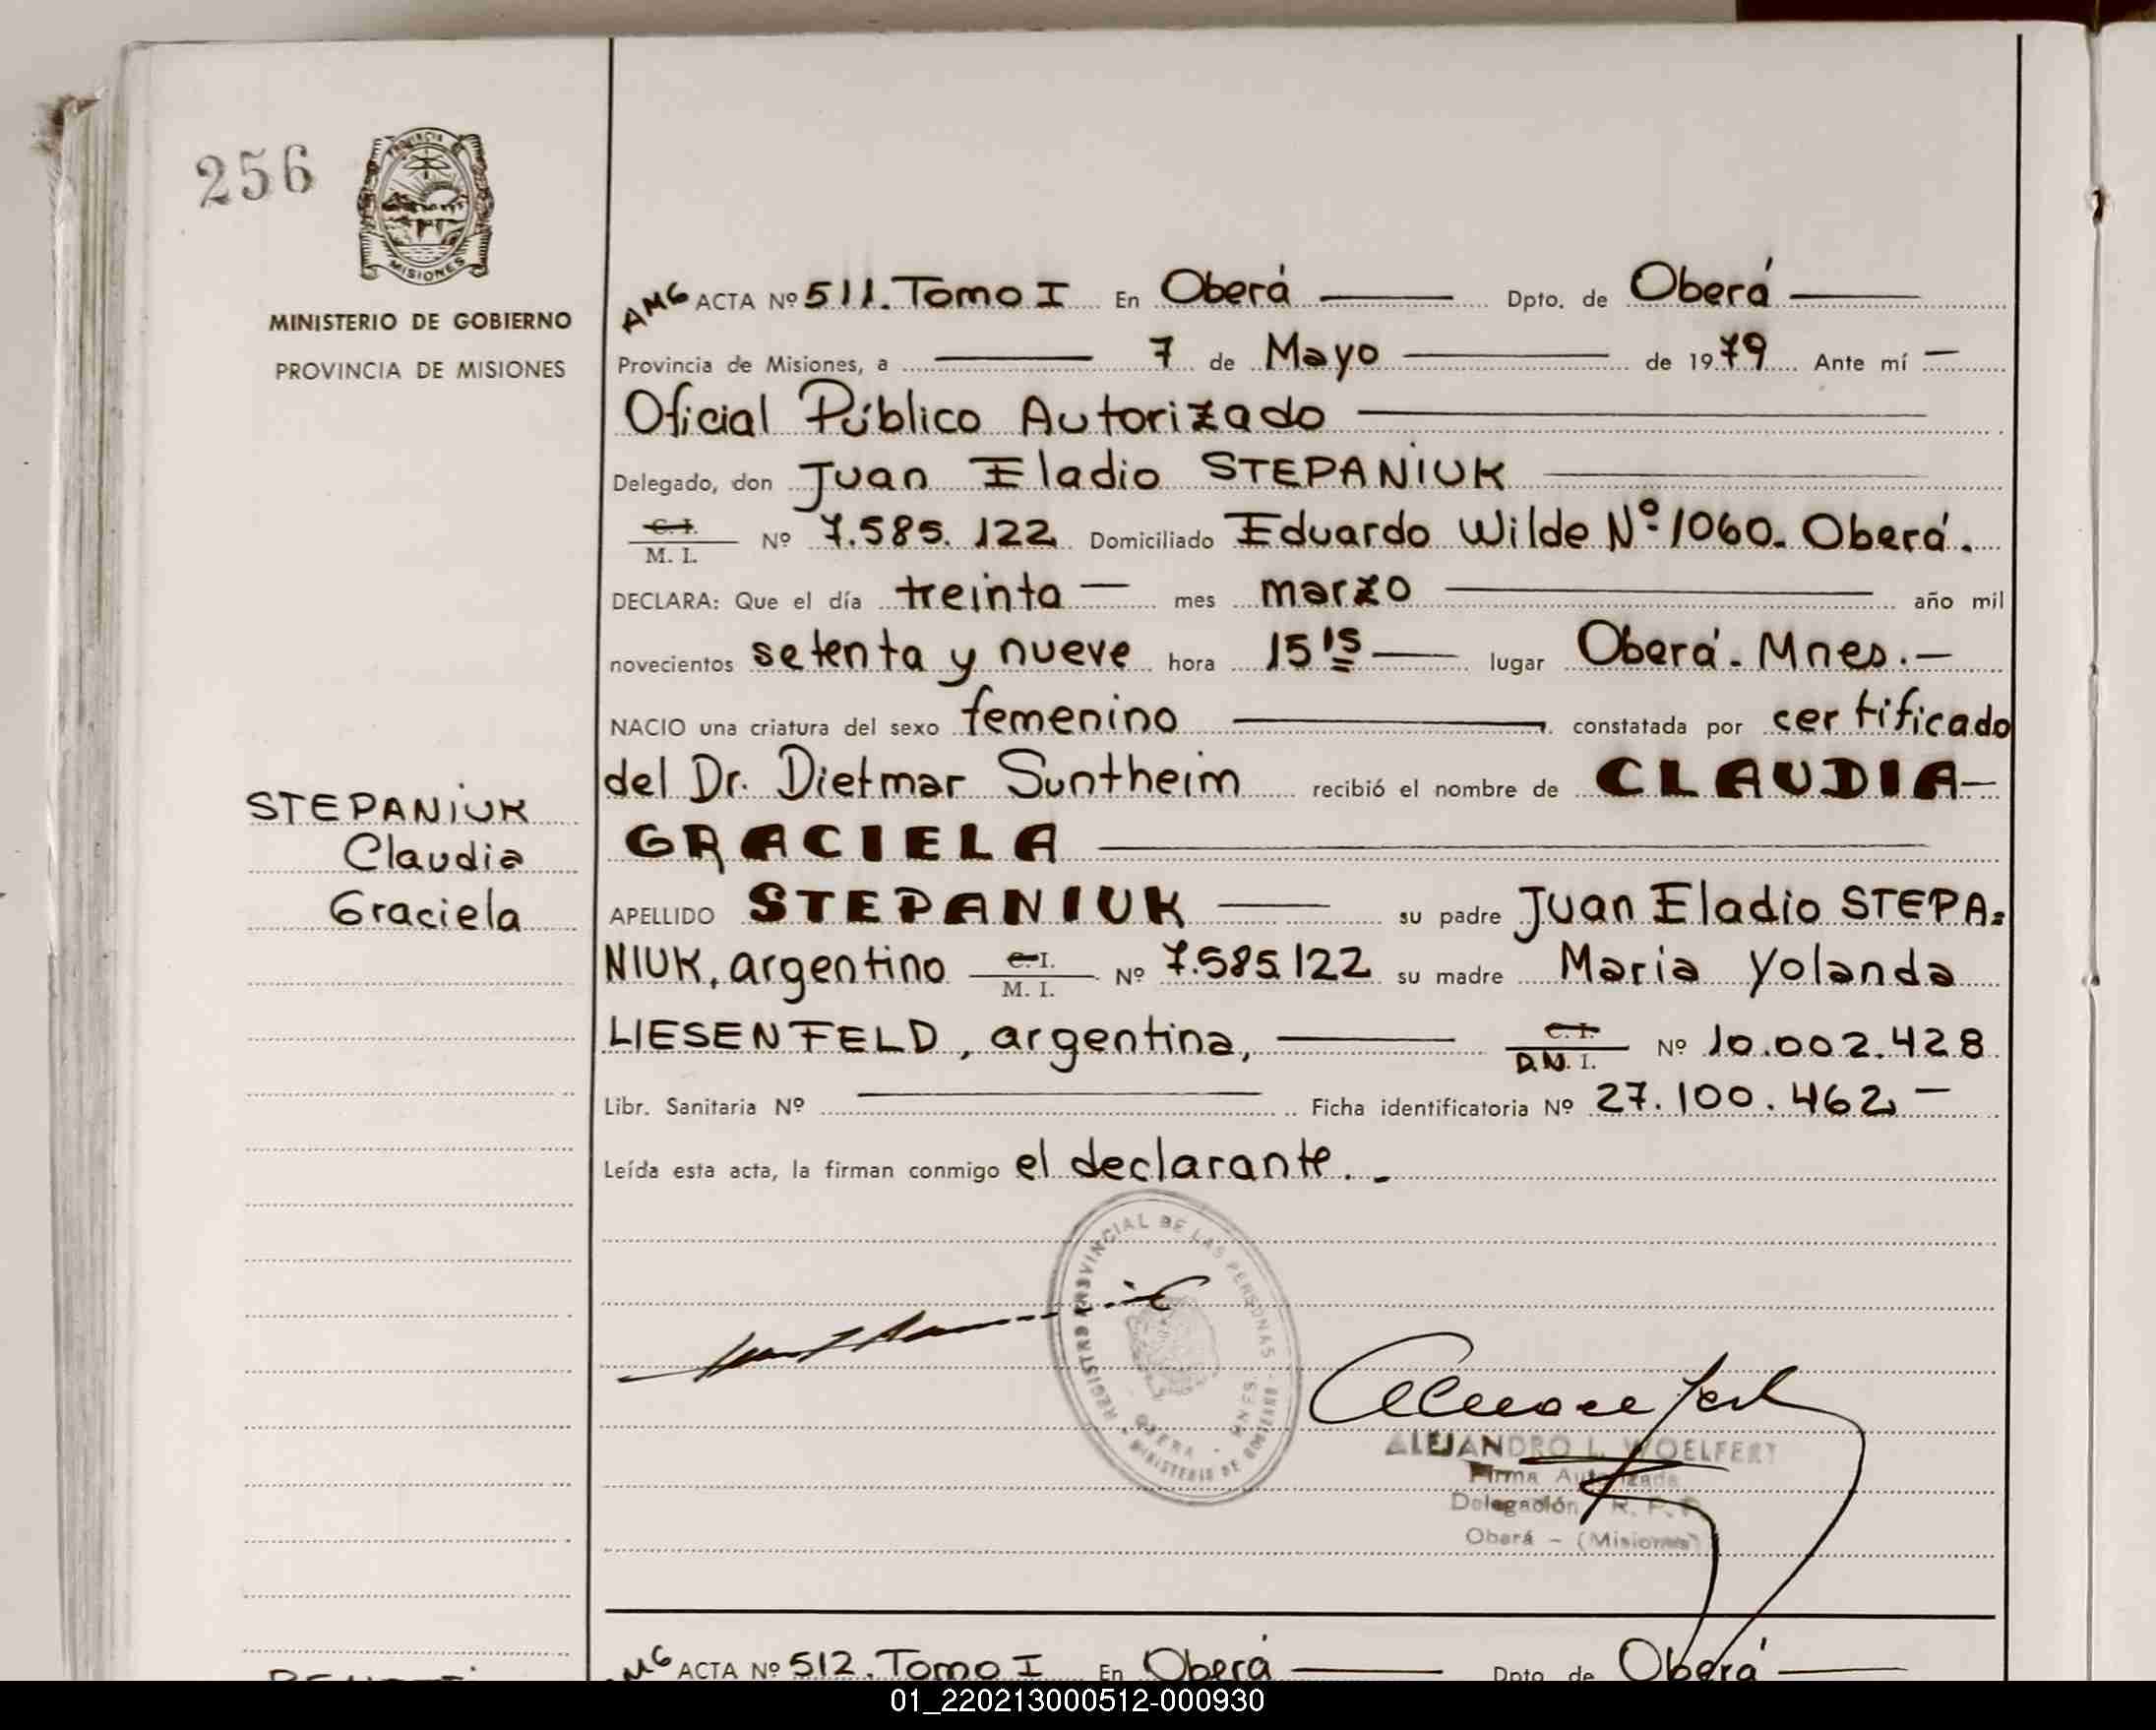 256
PROVINCIA DE
MISIONES
MINISTERIO DE GOBIERNO
PROVINCIA DE MISIONES
STEPANIUK
Claudia
Graciela
AMG ACTA Nº 511. Tomo I En Oberá Dpto. de Oberá
Provincia de Misiones, a 7 de Mayo de 1979 Ante mí
Oficial Público Autorizado
Delegado, don Juan Eladio STEPANIUK
C. I.
M. I. Nº 7.585.122 Domiciliado Eduardo Wilde Nº 1060. Oberá.
DECLARA: Que el día treinta mes marzo año mil
novecientos setenta y nueve hora 15 15 lugar Oberá. Mnes.
NACIO una criatura del sexo femenino constatada por certificado
del Dr. Dietmar Suntheim recibió el nombre de CLAUDIA
GRACIELA
APELLIDO STEPANIUK su padre Juan Eladio STEPA=
NIUK, argentino C. I.
M. I. Nº 7.585.122 su madre Maria Yolanda
LIESENFELD, argentina, C. I.
D.N. I. Nº 10.002.428
Libr. Sanitaria Nº Ficha identificatoria Nº 27.100.462
Leída esta acta, la firman conmigo el declarante.
REGISTRO PROVINCIAL DE LAS PERSONAS
OBERA - MNES.
MINISTERIO DE GOBIERNO
ALEJANDRO L. WOELFERT
Firma Autorizada
Delegación R. P. P.
Oberá - (Misiones)
AMG ACTA Nº 512. Tomo I En Oberá Dpto de Oberá
01_220213000512-000930